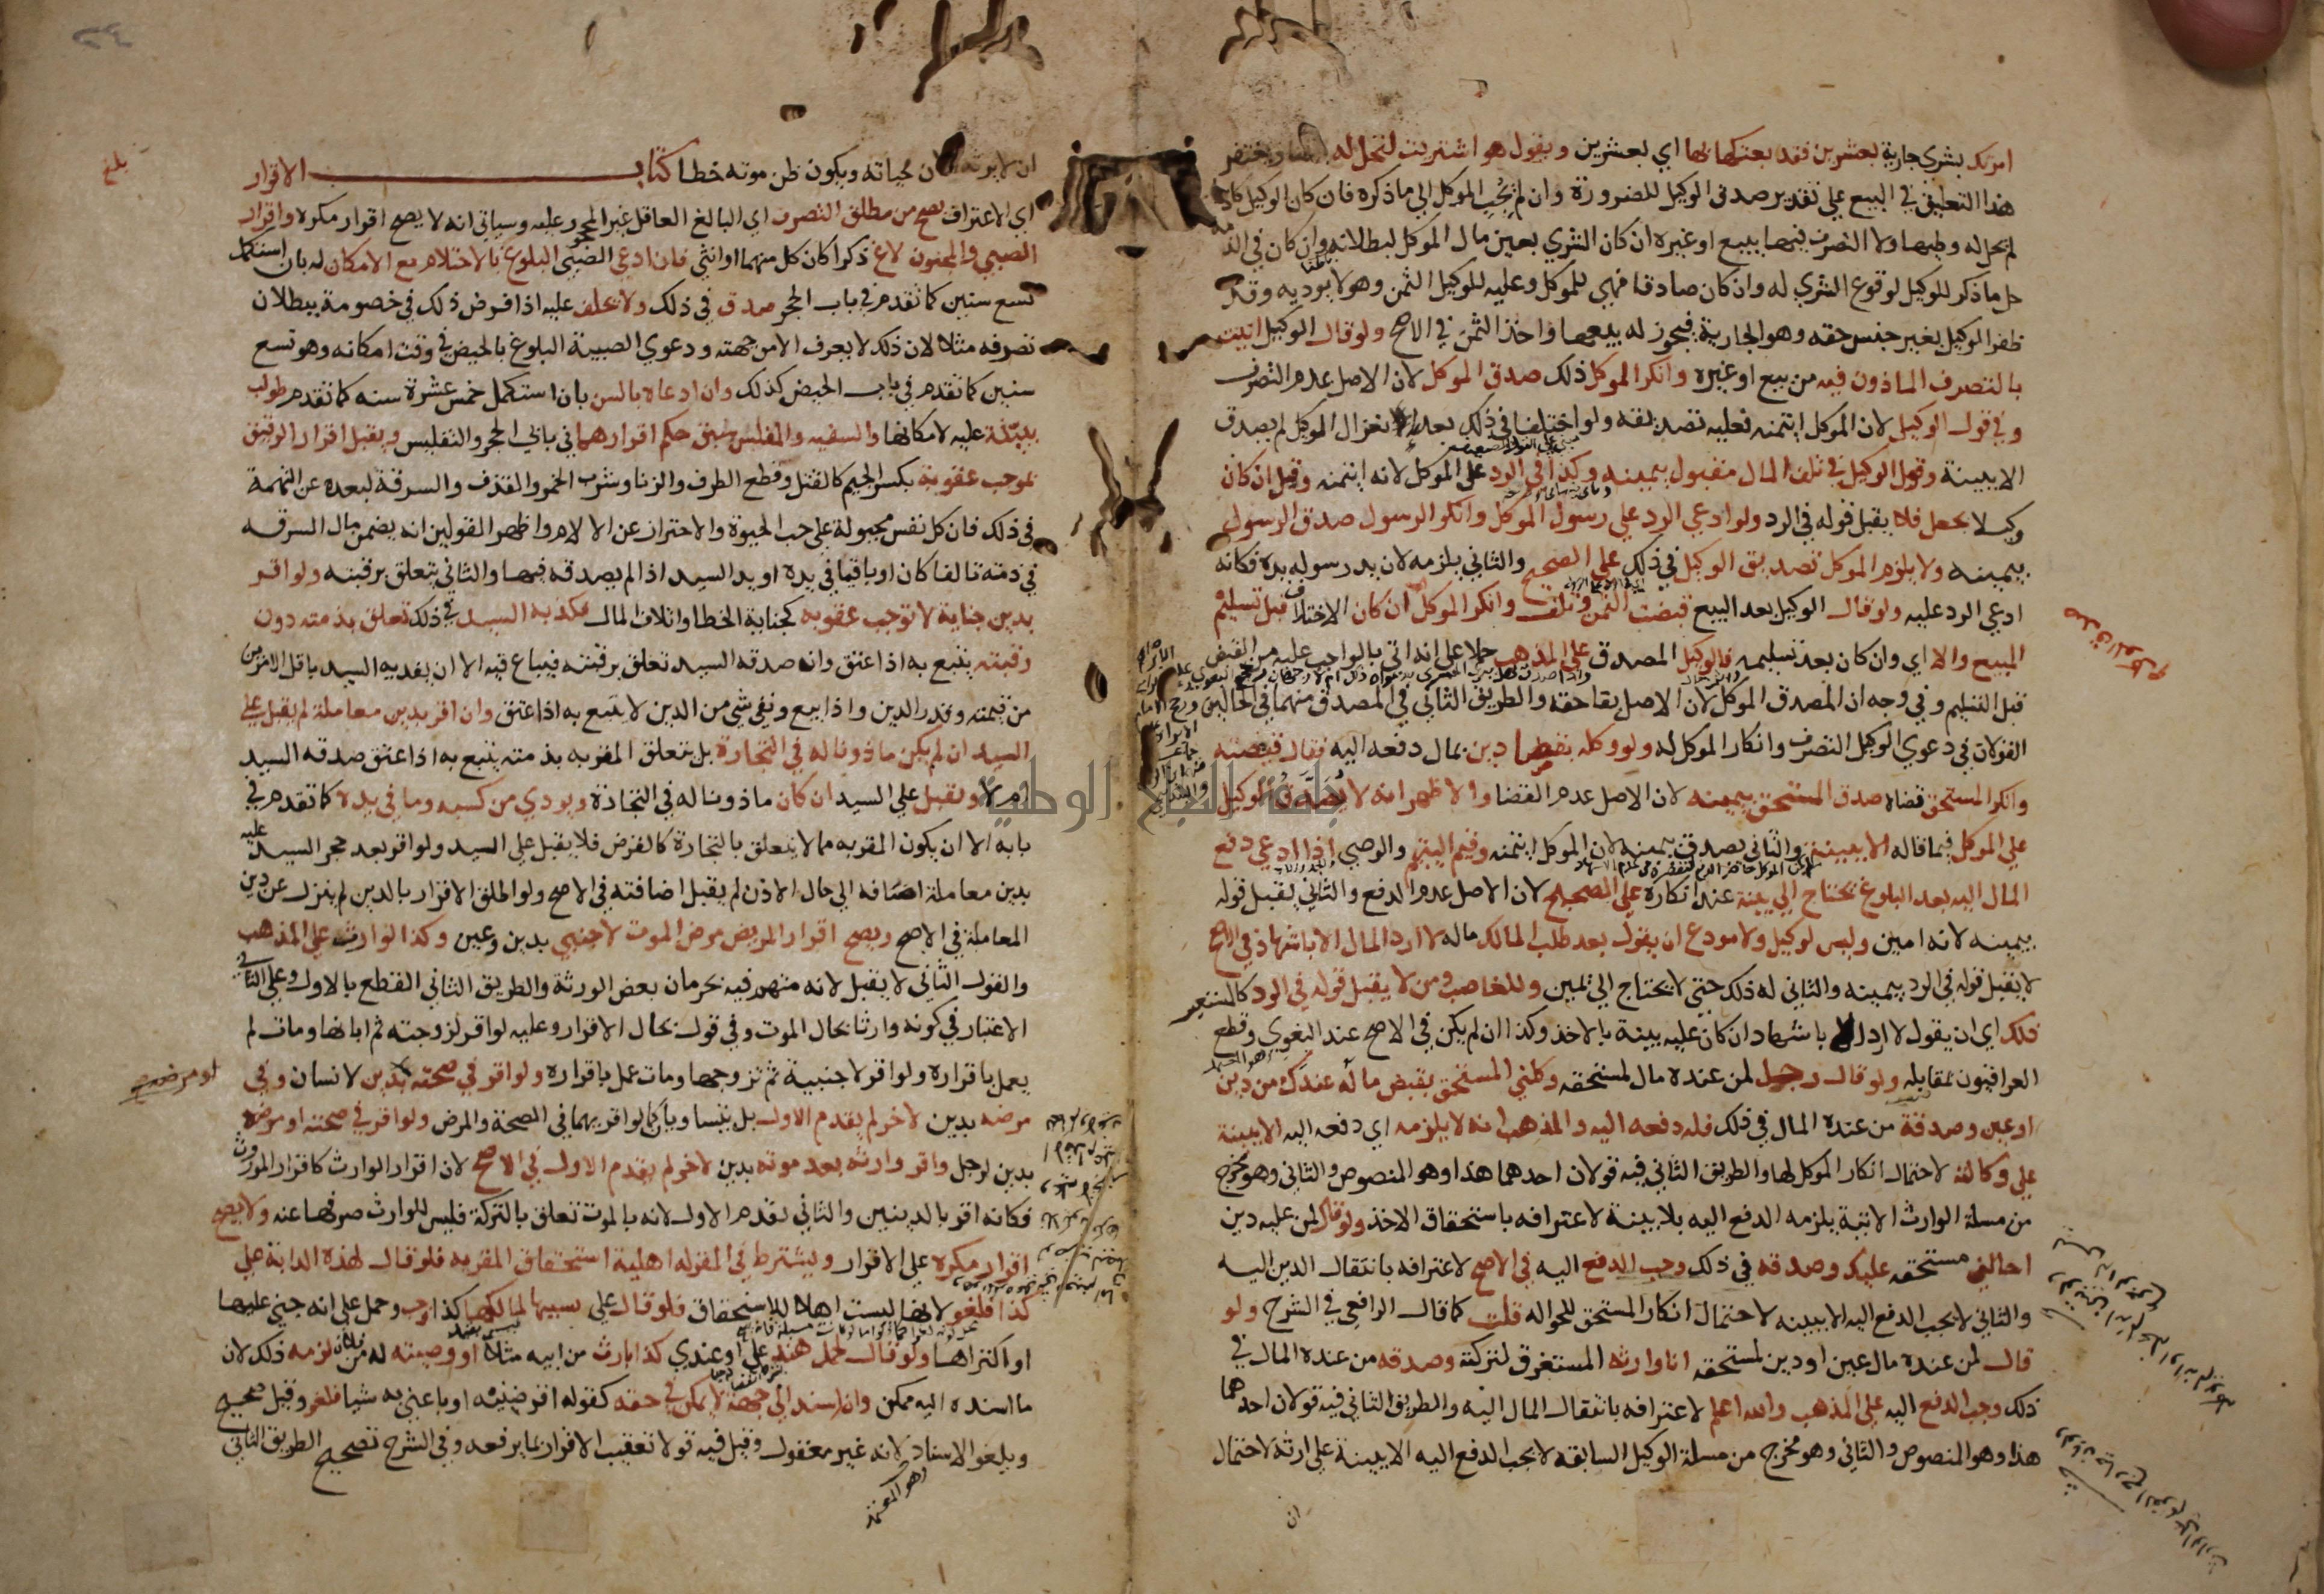 امرتك بشرى جارية بعشرين فقد بعتكها بها اي بعشرين ويقول هو اشتريت لتحل له باطنا ويغتفر
هذا التعليق في البيع على تقدير صدق الوكيل للضرورة وان لم يجب الموكل الي ما ذكره فان كان الوكيل كاذبا
لم يحل له وطيها ولا التصرف فيها ببيع او غيره ان كان الشري بعين مال الموكل لبطلانه وان كان في الذمة
حل ما ذكر للوكيل لوقوع الشري له وان كان صادقا فهي للموكل وعليه للوكيل الثمن وهو لا يوديه وقد
ظفر الوكيل بغير جنس حقه وهو الجارية فيجوز له بيعها واخذ الثمن في الاصح ولو قال الوكيل اتيت
بالتصرف الماذون فيه من بيع او غيره وانكر الموكل ذلك صدق الموكل لان الاصل عدم التصرف
وفي قول الوكيل لان الموكل ايتمنه فعليه تصديقه ولو اختلفا في ذلك بعد انعزال الوكيل لم يصدق
الا ببينة وقول الوكيل في تلف المال مقبول بيمينه وكذا في الرد على الموكل لانه ايتمنه وقيل ان كان
وكيلا بجعل فلا يقبل قوله في الرد ولو ادعي الرد علي رسول الموكل وانكر الرسول صدق الرسول
بيمينه ولا يلزم الموكل تصديق الوكيل في ذلك على الصحيح والثاني يلزمه لان يد رسوله يده فكانه
ادعي الرد عليه ولو قال الوكيل بعد البيع قبضت الثمن وتلف وانكر الموكل ان كان الاختلاف قبل تسليم
المبيع والا اي وان كان بعد تسليمه فالوكيل المصدق علي المذهب حملا على انه اتي بالواجب عليه من القبض
قبل التسليم وفي وجه ان المصدق الموكل لان الاصل بقا حقه والطريق الثاني في المصدق منهما في الحالين
القولان في دعوي الوكيل التصرف وانكار الموكل له ولو وكله بقضا دين بمال دفعه اليه فقال قضيته
وانكر المستحق قضاه صدق المستحق بيمينه لان الاصل عدم القضا والاظهر انه لا يصدق الوكيل
علي الموكل فيما قاله الا ببينة والثاني يصدق بيمينه لان الموكل ايتمنه وقيم اليتيم والوصي اذا ادعي دفع
المال اليه بعد البلوغ يحتاج الي بينة عند انكاره علي الصحيح لان الاصل عدم الدفع والثاني يقبل قوله
بيمينه لانه امين وليس لوكيل ولا مودع ان يقول بعد طلب المالك ماله لا ارد المال الا باشهاد في الاصح
لا يقبل قوله في الرد بيمينه والثاني له ذلك حتي لا يحتاج الي يمين وللغاصب ومن لا يقبل قوله في الرد كالمستعير
ذلك اي ان يقول لا ارد الا باشهاد ان كان عليه بينة بالاخذ وكذا ان لم يكن في الاصح عند البغوي وقطع
العراقيون بمقابله ولو قال رجل لمن عنده مال لمستحقه وكلني المستحق بقبض ماله عندك من دين
او عين وصدقه من عنده المال في ذلك فله دفعه اليه والمذهب انه لا يلزمه اي دفعه اليه الا ببينة
علي وكالته لاحتمال انكار الموكل لها والطريق الثاني فيه قولان احدهما هذا وهو المنصوص والثاني وهو مخرج
من مسلة الوارث الاتية يلزمه الدفع اليه بلا بينة لاعترافه باستحقاق الاخذ ولو قال لمن عليه دين
احالني مستحقه عليك وصدقه في ذلك وجب الدفع اليه في الاصح لاعترافه بانتقال الدين اليه
والثاني لا يجب الدفع اليه الا ببينه لاحتمال انكار المستحق للحواله قلت كما قال الرافعي في الشرح ولو
قال لمن عنده مال عين او دين لمستحقه انا وارثه المستغرق لتركته وصدقه من عنده المال في
ذلك وجب الدفع اليه علي المذهب والله اعلم لاعترافه بانتقال المال اليه والطريق الثاني فيه قولان احدهما
هذا وهو المنصوص والثاني وهو مخرج من مسلة الوكيل السابقه لا يجب الدفع اليه الا ببينة علي ارثه لاحتمال
ان
بلغ
ان لا يرثه الان لحياته ويكون ظن موته خطا كتاب الاقرار
اي الاعتراف يصح من مطلق التصرف اي البالغ العاقل غير المحجور عليه وسياتي انه لا يصح اقرار مكره واقرار
الصبي والمجنون لاغ ذكرا كان كل منهما او انثي فان ادعي الصبي البلوغ بالاحتلام مع الامكان له بان استكمل
تسع سنين كما تقدم في باب الحجر صدق في ذلك ولا يحلف عليه اذا فرض ذلك في خصومة ببطلان
تصرفه مثلا لان ذلك لا يعرف الا من جهته ودعوي الصبية البلوغ بالحيض في وقت امكانه وهو تسع
سنين كما تقدم في باب الحيض كذلك وان ادعاه بالسن بان استكمل خمس عشرة سنه كما تقدم طولب
ببينة عليه لامكانها والسفيه والمفلس سبق حكم اقرارهما في بابي الحجر والتفليس ويقبل اقرار الرقيق
بموجب عقوبة بكسر الجيم كالقتل وقطع الطرف والزنا وشرب الخمر والقذف والسرقة لبعده عن التهمة
في ذلك فان كل نفس مجبولة علي حب الحيوة والاحتراز عن الالام واظهر القولين انه يضمن مال السرقه
في ذمته تالفا كان او باقيا في يده او يد السيد اذا لم يصدقه فيها والثاني يتعلق برقبته ولو اقر
بدين جناية لا توجب عقوبه كجناية الخطا واتلاف المال فكذبه السيد في ذلك تعلق بذمته دون
رقبته يتبع به اذا عتق وان صدقه السيد تعلق برقبته فيباع فيه الا ان يفديه السيد باقل الامرين
من قيمته وقدر الدين واذا بيع وبقي شي من الدين لا يتبع به اذا عتق وان اقر بدين معاملة لم يقبل علي
السيد ان لم يكن ماذونا له في التجارة بل يتعلق المقر به بذمته يتبع به اذا عتق صدقه السيد
ام لا ويقبل علي السيد ان كان ماذونا له في التجارة ويودي من كسبه وما في يده كما تقدم في
بابه الا ان يكون المقر به مما لا يتعلق بالتجارة كالقرض فلا يقبل علي السيد ولو اقر بعد حجر السيد عليه
بدين معاملة اضافه الي حال الاذن لم يقبل اضافته في الاصح ولو اطلق الاقرار بالدين لم ينزل عن دين
المعاملة في الاصح ويصح اقرار المريض مرض الموت لاجنبي بدين وعين وكذا لوارث علي المذهب
والقول الثاني لا يقبل لانه متهم فيه بحرمان بعض الورثة والطريق الثاني القطع بالاول وعلي الثاني
الاعتبار في كونه وارثا بحال الموت وفي قول بحال الاقرار وعليه لو اقر لزوجته ثم ابانها ومات لم
يعمل باقراره ولو اقر لاجنبية ثم تزوجها ومات عمل باقراره ولو اقر في صحته بدين لانسان وفي
او مرضه
مرضه بدين لاخر لم يقدم الاول بل يتساويان كما لو اقر بهما في الصحة والمرض ولو اقر في صحته او مرضه
بدين لرجل واقر وارثه بعد موته بدين لاخر لم يقدم الاول في الاصح لان اقرار الوارث كاقرار الموروث
فكانه اقر بالدينين والثاني يقدم الاول لانه بالموت تعلق بالتركة فليس للوارث صرفها عنه ولا يصح
اقرار مكره علي الاقرار ويشترط في المقر له اهلية استحقاق المقر به فلو قال لهذه الدابة علي
كذا فلغو لانها ليست اهلا للاستحقاق فلو قال علي بسببها لمالكها كذا وجب وحمل علي انه جني عليها
او اكتراها ولو قال لحمل هند علي او عندي كذا بارث من ابيه مثلا او وصية له من فلان لزمه ذلك لان
ما اسنده اليه ممكن وان اسند الي جهة لا يمكن في حقه كقوله اقرضنيه او باعني به شيا فلغو وقيل صحيح
ويلغو الاسناد لانه غير معقول وقيل فيه قولا تعقيب الاقرار بما يرفعه وفي الشرح تصحيح الطريق الثاني
وهو المعتمد